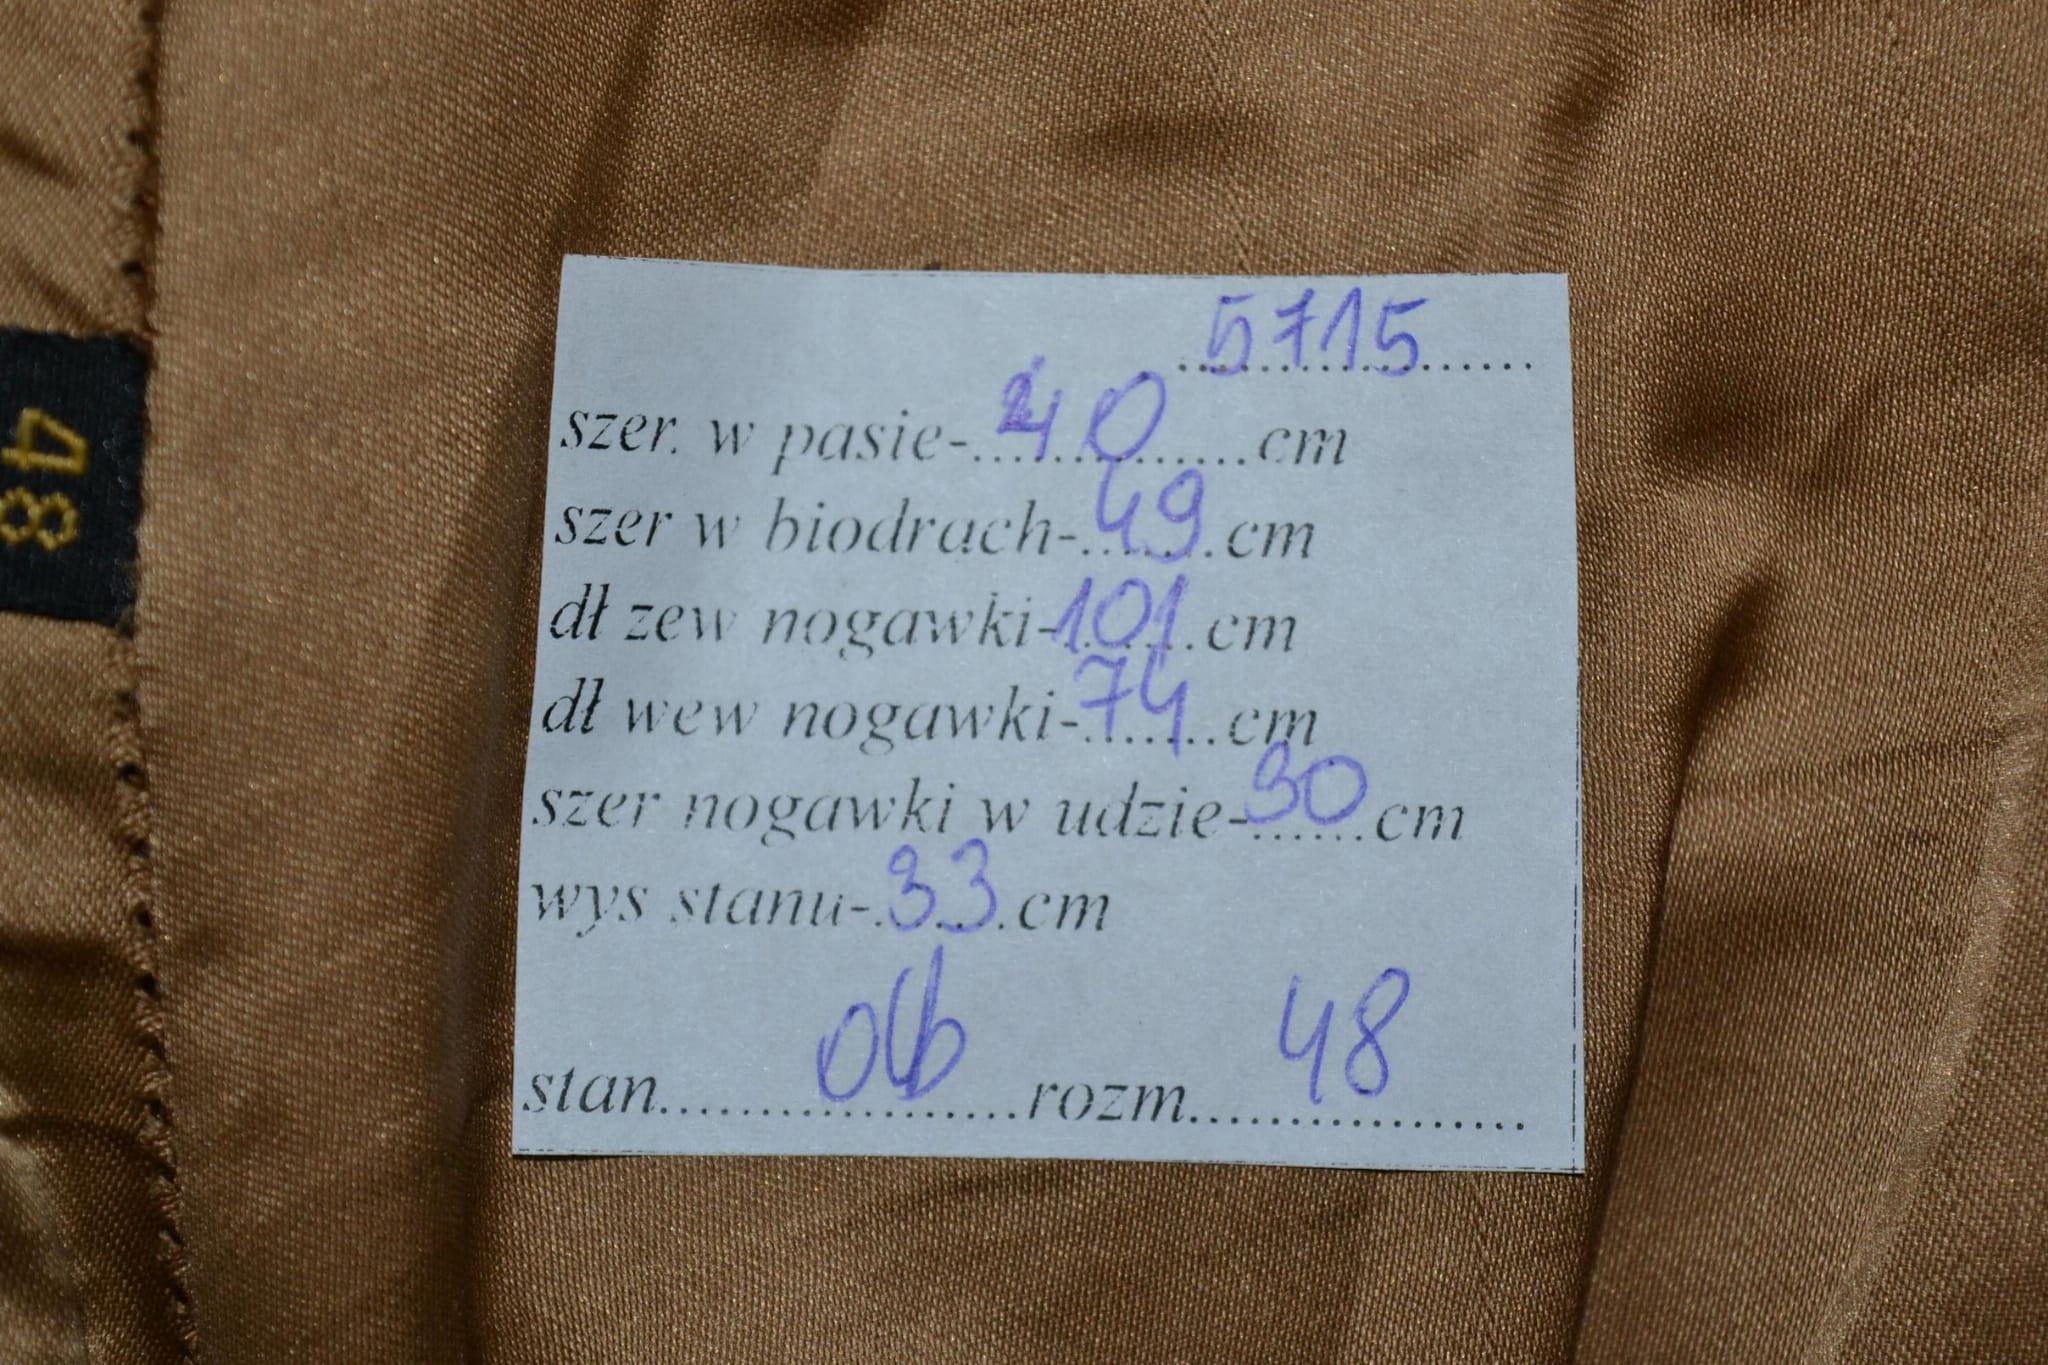 48
5715
szer. w pasie-40cm
szer w biodrach-49cm
dł zew nogawki-101cm
dł wew nogawki-74cm
szer nogawki w udzie-30cm
wys stanu-33cm
stan rozm 48